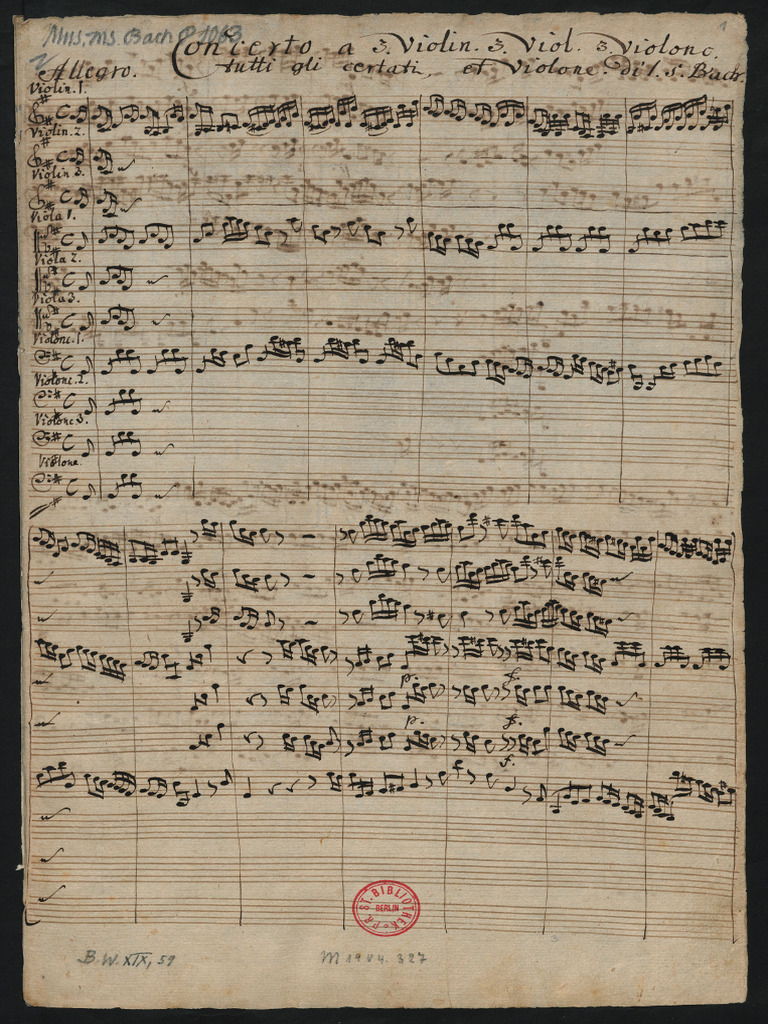 Mus. ms. Bach P 1063
1
Concerto a 3. Violin. 3. Viol. 3. Violonc.
Allegro. tutti gli certati, et Violone. di J. S. Bach.
Violin. 1.
Violin. 2.
Violin 3.
Viola 1.
Viola 2.
Viola 3.
Violonc. 1.
Violonc. 2.
Violonc 3.
Violone.
p. f.
p. f.
f.
PR. ST. BIBLIOTHEK
BERLIN
B. W. XIX, 59
M 1904. 327